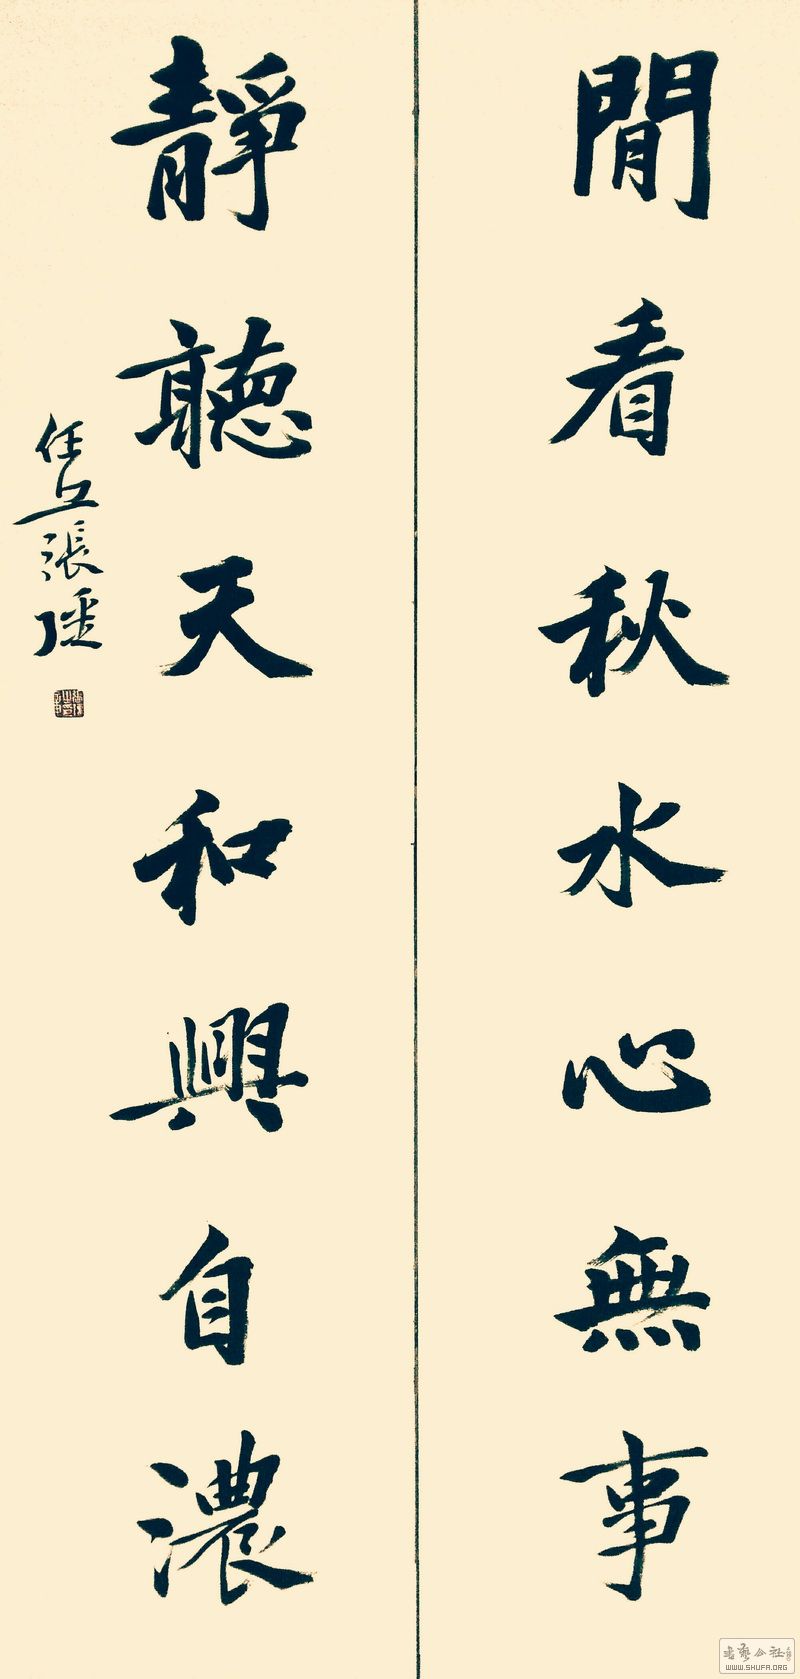 閒看秋水心無事
靜聽天和興自濃
任丘張
WWW.SHUFA.ORG